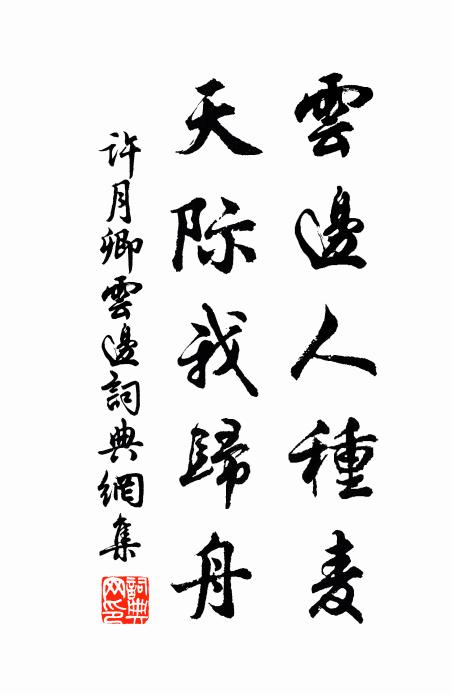 雲邊人種麦
天际我歸舟
許月卿雲邊詞典網集
詞典網印